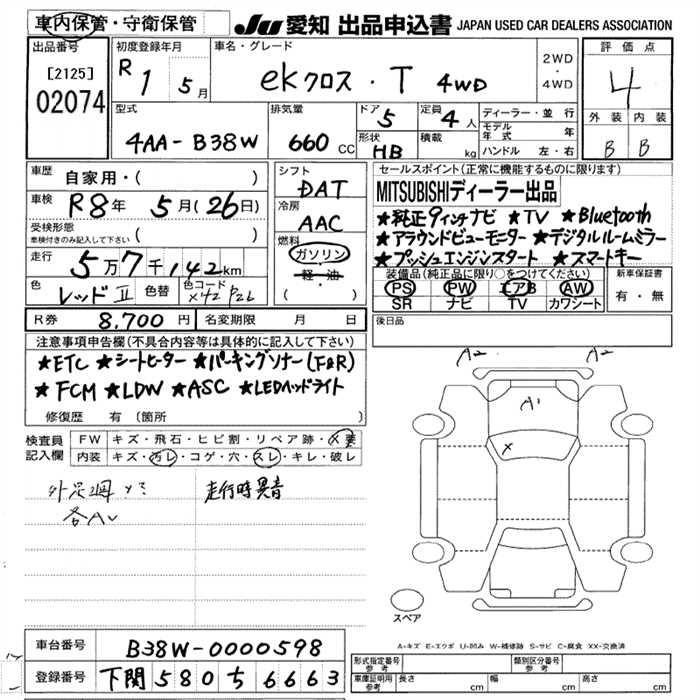 車内保管・守衛保管
JU 愛知 出品申込書 JAPAN USED CAR DEALERS ASSOCIATION
出品番号
[2125]
02074
初度登録年月
R 1 5月
車名・グレード
ekクロス・T 4WD
2WD
・
4WD
評価点
4
型式
4AA-B38W
排気量
660 CC
ドア
5
形状
HB
定員
4人
積載
kg
ディーラー・並行
モデル
年式 年
ハンドル 左・右
外装 内装
B B
車歴
自家用・( )
車検
R8年 5月(26日)
受検形態
車検付きのみ記入して下さい ( )
走行
5万7千142km
色 レッドⅡ 色替 色コード
シフト
DAT
冷房
AAC
燃料
ガソリン
・軽・油
( )
セールスポイント(正常に機能するものに限ります)
MITSUBISHIディーラー出品
★純正9インチナビ ★TV ★Bluetooth
★アラウンドビューモニター ★デジタルルームミラー
★プッシュエンジンスタート ★スマートキー
装備品(純正品に限り○をつけてください)
PS PW エアB AW
SR ナビ TV カワシート
新車保証書
有・無
R券 8,700円 名変期限 月 日
後日品
注意事項申告欄(不具合内容等は具体的に記入して下さい)
★ETC ★シートヒーター ★パーキングソナー(F&R)
★FCM ★LDW ★ASC ★LEDヘッドライト
修復歴 有(箇所 )
検査員
記入欄
FW キズ・飛石・ヒビ割・リペア跡・×要
内装 キズ・汚レ・コゲ・穴・スレ・キレ・破レ
走行時異音
A2 A2
A1
X
スペア
A-キズ E-エクボ U-凹み W-補修跡 S-サビ C-腐食 XX-交換済
車台番号 B38W-0000598
登録番号 下関580ち6663
形式指定番号
参考
類別区分番号
参考
車庫証明用
参考
長さ cm 幅 cm 高さ cm